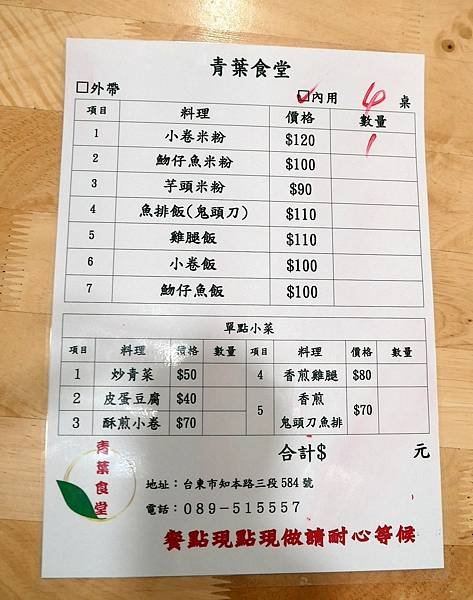 青葉食堂
□外帶 ☑內用 4 桌
項目 料理 價格 數量
1 小卷米粉 $120 1
2 魩仔魚米粉 $100
3 芋頭米粉 $90
4 魚排飯(鬼頭刀) $110
5 雞腿飯 $110
6 小卷飯 $100
7 魩仔魚飯 $100
單點小菜
項目 料理 價格 數量 項目 料理 價格 數量
1 炒青菜 $50 4 香煎雞腿 $80
2 皮蛋豆腐 $40 5 香煎 $70
3 酥煎小卷 $70 鬼頭刀魚排
合計$ 元
青葉食堂
地址：台東市知本路三段584號
電話：089-515557
餐點現點現做請耐心等候